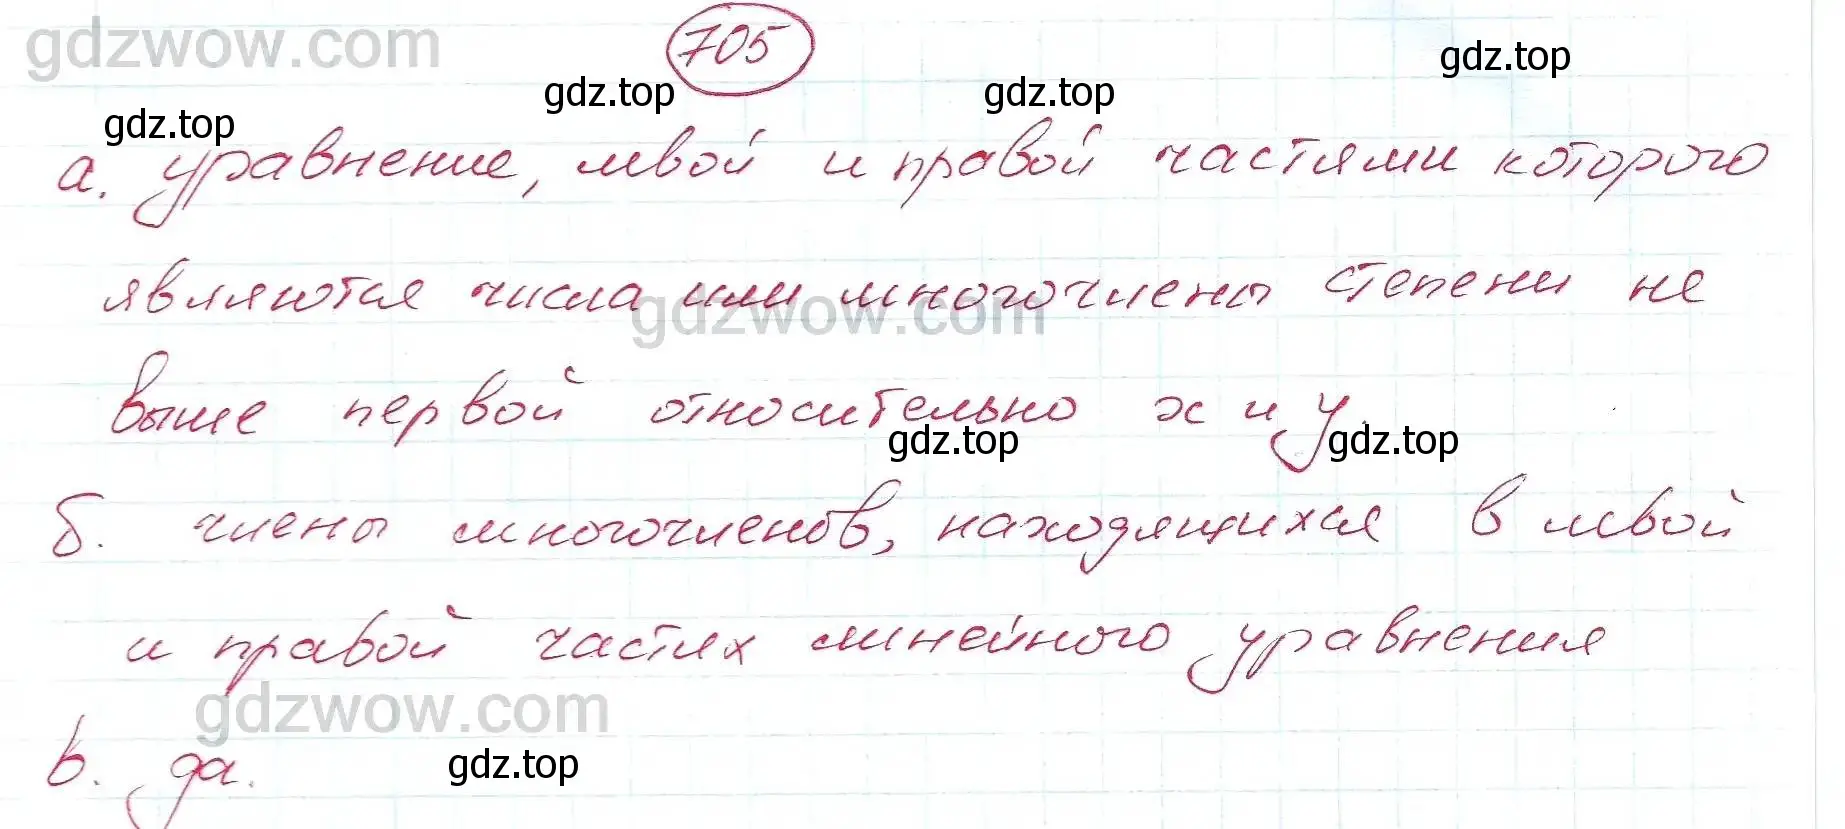 gdzwow.com 705 gdz.top
gdz.top gdz.top gdz.top
а. уравнение, левой и правой частями которого
являются числа или многочлены степени не
gdzwow.com
выше первой относительно х и у.
gdz.top gdz.top
б. члены многочленов, находящихся в левой
и правой частях линейного уравнения
gdzwow.com
в. да. gdz.top